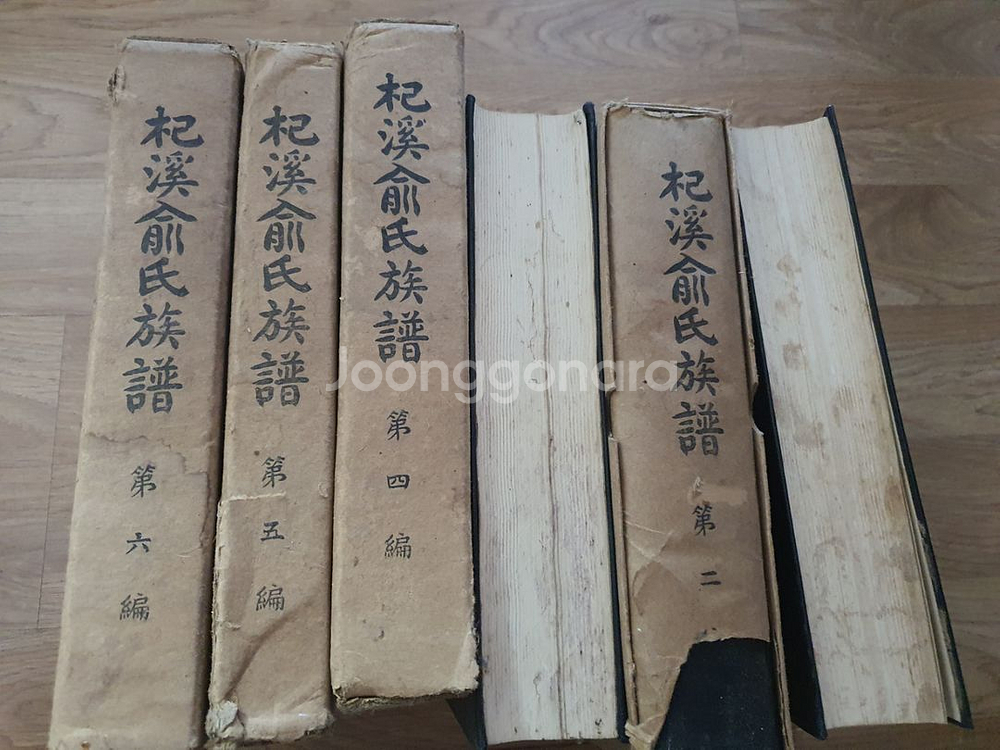 杞溪兪氏族譜
第六編
杞溪兪氏族譜
第五編
杞溪兪氏族譜
第四編
杞溪兪氏族譜
第二
Joonggonara